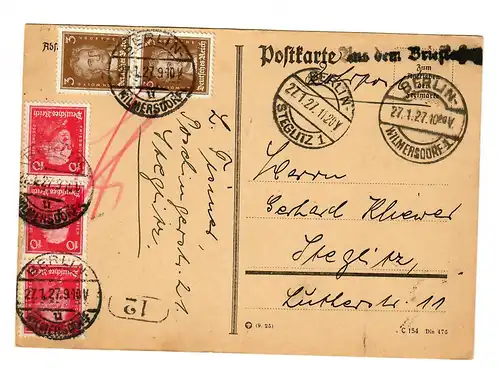 Postkarte
Aus dem Briefkasten
BERLIN-
STEGLITZ 1
27.1.27. 11.20V.
BERLIN-
WILMERSDORF 1
27.1.27. 10.20V.
Herrn
Gerhard Kliewer
Steglitz
Lutherstr. 11
Steglitz.
12
BERLIN-
WILMERSDORF
27.1.27. 9-10V
3 Deutsches Reich
3 Deutsches Reich
10 Deutsches Reich
10 Deutsches Reich
Deutsches Reich
(9. 25)
C 154 Din 476